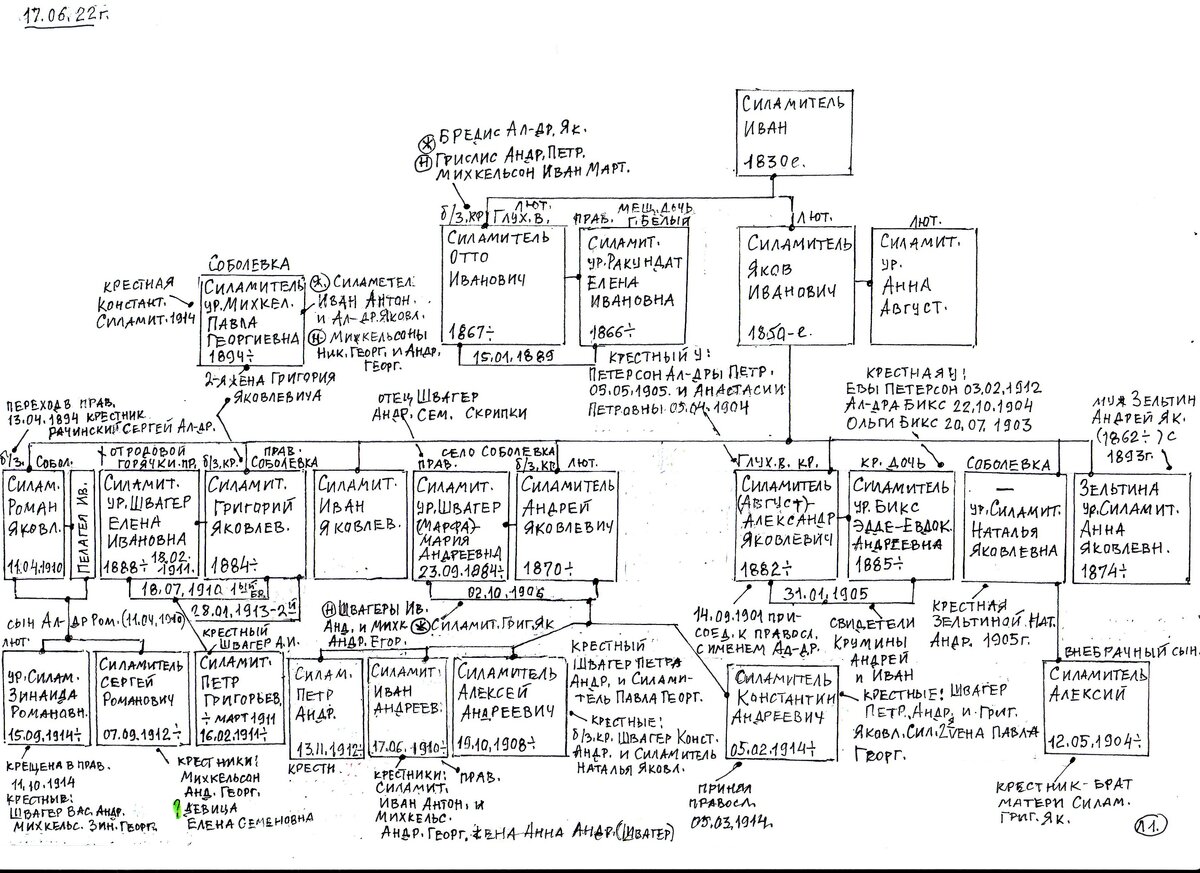 17.06.22г.
СИЛАМИТЕЛЬ
ИВАН
1830е.
Ж БРЕДИС АЛ-ДР. ЯК.
Н ГРИСЛИС АНДР. ПЕТР.
МИХКЕЛЬСОН ИВАН МАРТ.
б/З, КР. ЛЮТ.
ГЛУХ. В,
СИЛАМИТЕЛЬ
ОТТО
ИВАНОВИЧ
1867÷
ПРАВ. МЕЩ. ДОЧЬ
Г. БЕЛЫЙ
СИЛАМИТ.
УР. РАКУНДАТ
ЕЛЕНА
ИВАНОВНА
1866÷
15.01.1889
ЛЮТ.
СИЛАМИТЕЛЬ
ЯКОВ
ИВАНОВИЧ
1850-е.
ЛЮТ.
СИЛАМИТ.
УР.
АННА
АВГУСТ.
КРЕСТНАЯ
КОНСТАНТ.
СИЛАМИТ. 1914
СОБОЛЕВКА
СИЛАМИТЕЛЬ
УР. МИХКЕЛ.
ПАВЛА
ГЕОРГИЕВНА
1894÷
Ж. СИЛАМЕТЕЛ.
ИВАН АНТОН.
И АЛ-ДР. ЯКОВЛ.
Н МИХКЕЛЬСОНЫ
НИК. ГЕОРГ. И АНДР.
ГЕОРГ.
2-Я ЖЕНА ГРИГОРИЯ
ЯКОВЛЕВИЧА
КРЕСТНЫЙ У:
ПЕТЕРСОН АЛ-ДРЫ ПЕТР.
05.05.1905. И АНАСТАСИИ
ПЕТРОВНЫ 05.04.1904
КРЕСТНАЯ У:
ЕВЫ ПЕТЕРСОН 03.02.1912
АЛ-ДРА БИКС 22.10.1904
ОЛЬГИ БИКС 20.07.1903
МУЖ ЗЕЛЬТИН
АНДРЕЙ ЯК.
(1862÷) С
1893г.
ПЕРЕХОД В ПРАВ.
13.04.1894 КРЕСТНИК
РАЧИНСКИЙ СЕРГЕЙ АЛ-ДР.
ОТЕЦ ШВАГЕР
АНДР. СЕМ. СКРИПКИ
б/З. СОБОЛ.
СИЛАМ.
РОМАН
ЯКОВЛ.
11.04.1910
ПЕЛАГЕЯ ИВ.
† ОТ РОДОВОЙ
ГОРЯЧКИ. ПР,
СИЛАМИТ.
УР. ШВАГЕР
ЕЛЕНА
ИВАНОВНА
1888÷ 18.02.
1911.
ПРАВ.
б/З, КР. СОБОЛЕВКА
СИЛАМИТ.
ГРИГОРИЙ
ЯКОВЛЕВ.
1884÷
СИЛАМИТ.
ИВАН
ЯКОВЛЕВ.
СЕЛО СОБОЛЕВКА
ПРАВ.
СИЛАМИТ.
УР. ШВАГЕР
(МАРФА)-
МАРИЯ
АНДРЕЕВНА
23.09.1884÷
б/З, КР. ЛЮТ.
СИЛАМИТЕЛЬ
АНДРЕЙ
ЯКОВЛЕВИЧ
1870÷
ГЛУХ. В. КР.
СИЛАМИТЕЛЬ
(АВГУСТ)-
АЛЕКСАНДР
ЯКОВЛЕВИЧ
1882÷
КР. ДОЧЬ
СИЛАМИТЕЛЬ
УР. БИКС
ЭДДЕ-ЕВДОК.
АНДРЕЕВНА
1885÷
СОБОЛЕВКА
—
УР. СИЛАМИТ.
НАТАЛЬЯ
ЯКОВЛЕВНА
ЗЕЛЬТИНА
УР. СИЛАМИТ.
АННА
ЯКОВЛЕВН.
1874÷
18.07.1910 1ЫЙ БР.
28.01.1913-2Й
02.10.1906
31.01.1905
СЫН АЛ-ДР РОМ. (11.04.1910)
КРЕСТНЫЙ
ШВАГЕР А.И.
Н ШВАГЕРЫ ИВ.
АНД. И МИХК. Ж СИЛАМИТ. ГРИГ. ЯК
АНДР. ЕГОР.
14.09.1901 ПРИ-
СОЕД. К ПРАВОСЛ.
С ИМЕНЕМ АЛ-ДР.
СВИДЕТЕЛИ
КРУМИНЫ
АНДРЕЙ
И ИВАН
КРЕСТНАЯ
ЗЕЛЬТИНОЙ НАТ.
АНДР. 1905г.
ЛЮТ.
УР. СИЛАМ.
ЗИНАИДА
РОМАНОВН.
15.09.1914÷
СИЛАМИТЕЛЬ
СЕРГЕЙ
РОМАНОВИЧ
07.09.1912÷
СИЛАМИТ.
ПЕТР
ГРИГОРЬЕВ.
÷ МАРТ 1911
16.02.1911÷
СИЛАМ.
ПЕТР
АНДР.
13.11.1912÷
КРЕСТН.
СИЛАМИТ.
ИВАН
АНДРЕЕВ.
17.06.1910÷
СИЛАМИТЕЛЬ
АЛЕКСЕЙ
АНДРЕЕВИЧ
19.10.1908÷
КРЕСТНЫЙ
ШВАГЕР ПЕТРА
АНДР. И СИЛАМИ-
ТЕЛЬ ПАВЛА ГЕОРГ.
КРЕСТНЫЕ:
б/З. КР. ШВАГЕР КОНСТ.
АНДР. И СИЛАМИТЕЛЬ
НАТАЛЬЯ ЯКОВЛ.
СИЛАМИТЕЛЬ
КОНСТАНТИН
АНДРЕЕВИЧ
05.02.1914÷
КРЕСТНЫЕ: ШВАГЕР
ПЕТР. АНДР. И ГРИГ.
ЯКОВЛ. СИЛ. ПАВЛА
ГЕОРГ.
ВНЕБРАЧНЫЙ СЫН.
СИЛАМИТЕЛЬ
АЛЕКСИЙ
12.05.1904÷
КРЕЩЕНА В ПРАВ.
11.10.1914
КРЕСТНЫЕ:
ШВАГЕР ВАС. АНДР.
МИХКЕЛЬС. ЗИН. ГЕОРГ.
КРЕСТНИКИ:
МИХКЕЛЬСОН
АНД. ГЕОРГ.
? ДЕВИЦА
ЕЛЕНА СЕМЕНОВНА
КРЕСТНИКИ: ПРАВ.
СИЛАМИТ.
ИВАН АНТОН. И
МИХКЕЛЬС.
АНДР. ГЕОРГ. ЖЕНА АННА АНДР. (ШВАГЕР)
ПРИНЯЛ
ПРАВОСЛ.
05.03.1914.
КРЕСТНИК-БРАТ
МАТЕРИ СИЛАМ.
ГРИГ. ЯК.
Л1.